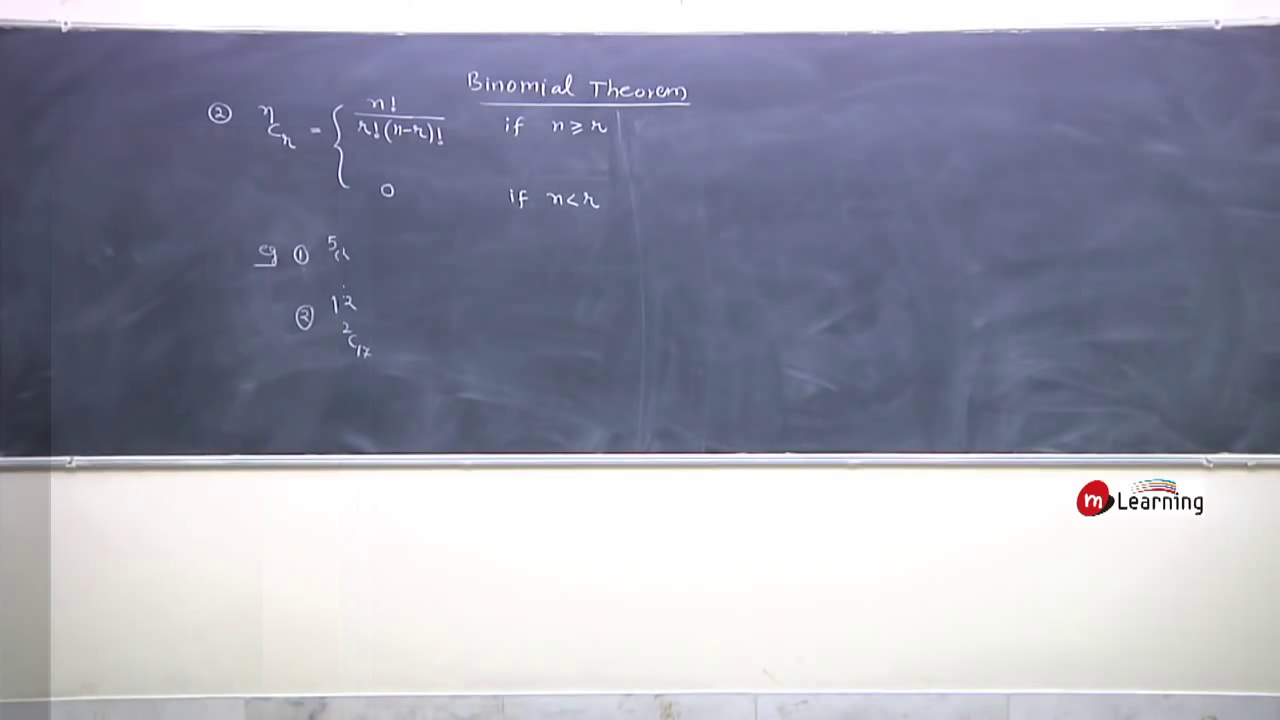 Binomial Theorem
② ⁿCᵣ = { n! / r!(n-r)! if n ≥ r
0 if n < r
eg ①
② 12
²C₁₇
m Learning